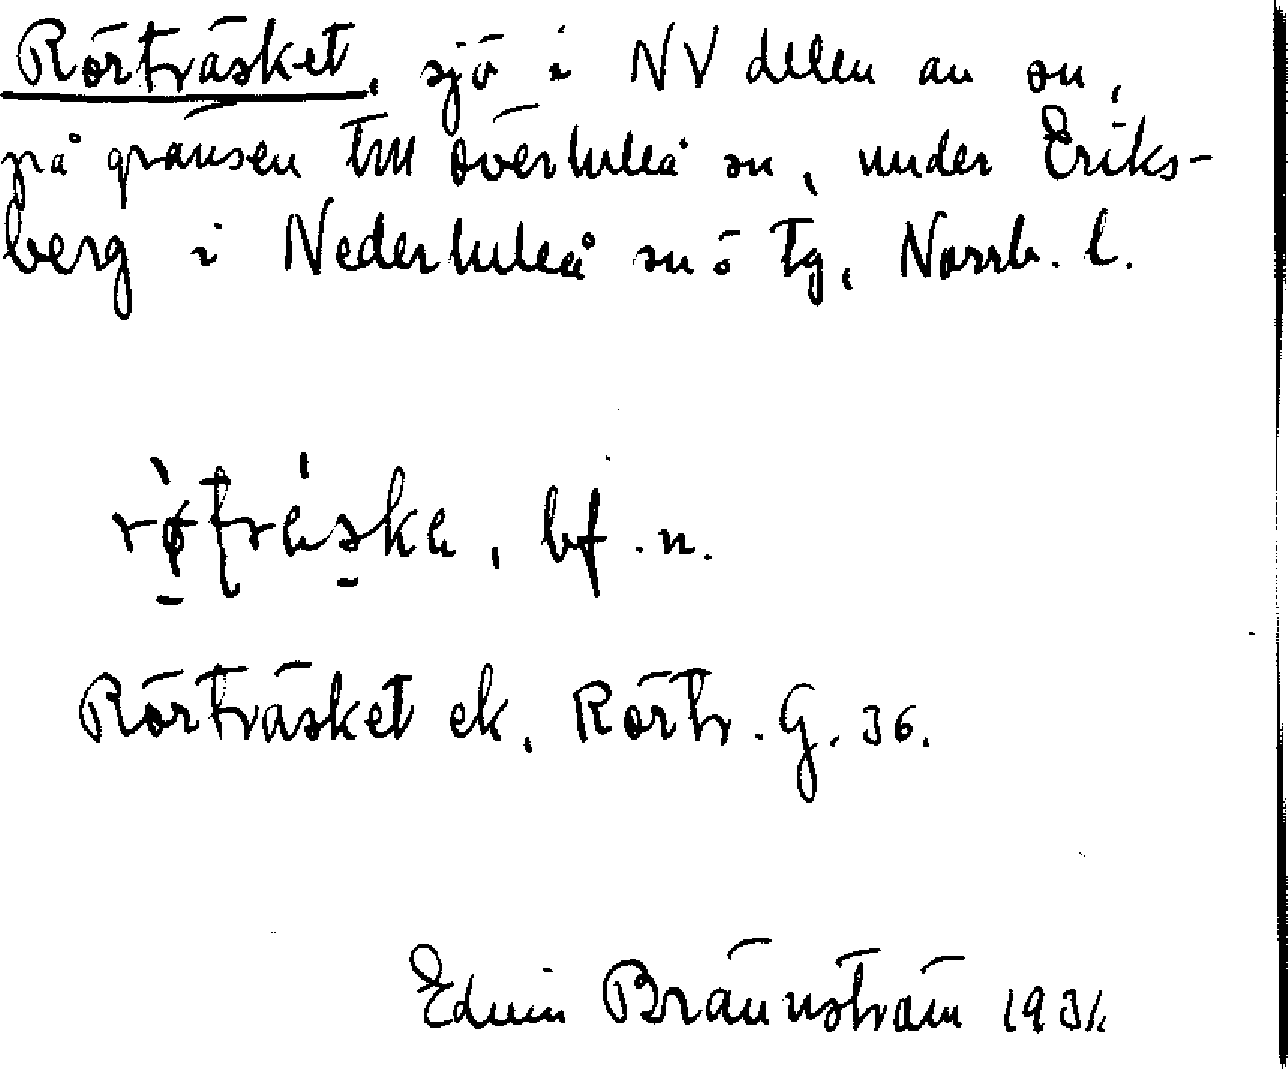 Rörträsket, sjö i NV delen av sn,
på gränsen till Överluleå sn, under Eriks-
berg i Nederluleå sn o tg, Norrb. l.
bf. n.
Rörträsket ek, Rörtr. G. 36.
Edvin Brännström 193